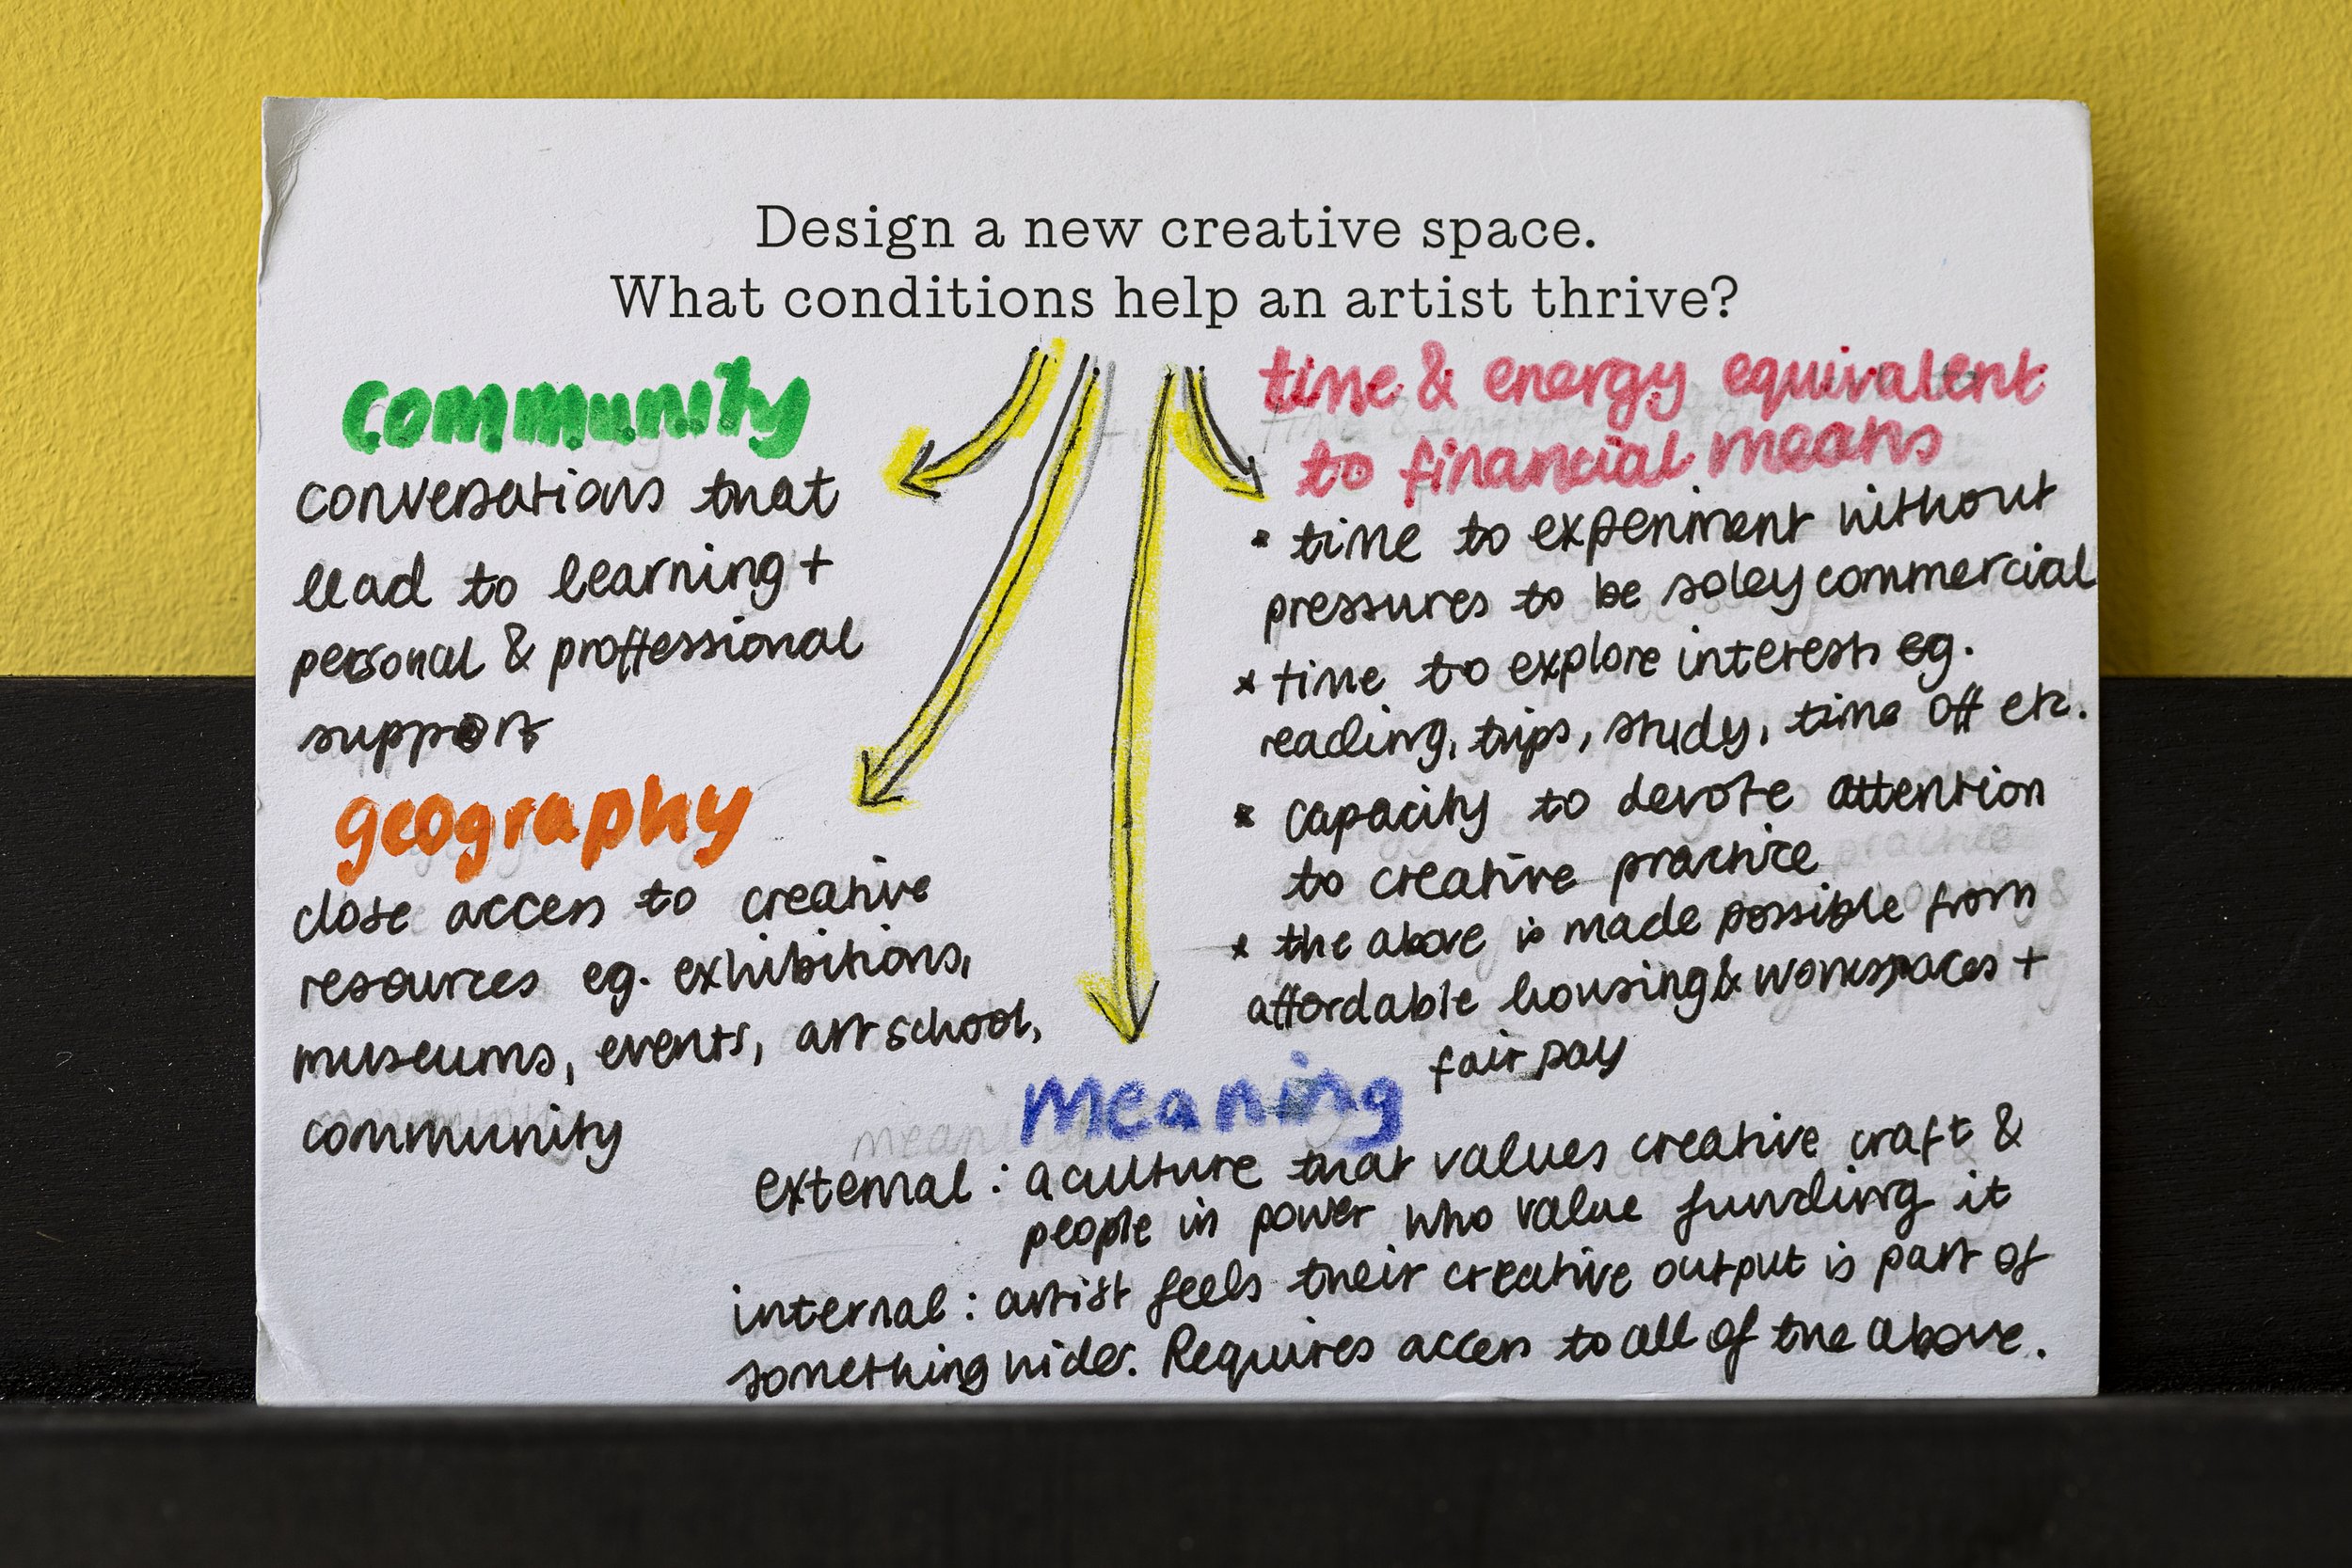 Design a new creative space.
What conditions help an artist thrive?
community
conversations that
lead to learning +
personal & proffessional
support
geography
close access to creative
resources eg. exhibitions,
museums, events, art school,
community
time & energy equivalent
to financial means
* time to experiment without
pressures to be soley commercial
* time to explore interests eg.
reading, trips, study, time off etc.
* capacity to devote attention
to creative practice
* the above is made possible from
affordable housing & workspaces +
fair pay
meaning
external : a culture that values creative craft &
people in power who value funding it
internal : artist feels their creative output is part of
something wider. Requires access to all of the above.